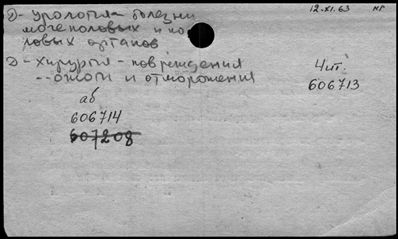 Д- урология- болезни
мочеполовых и по-
ловых органов
Д- хирургия - повреждения
-- ожоги и отморожения
аб
606714
607208
12-XI.63 НГ
Чит.
606713